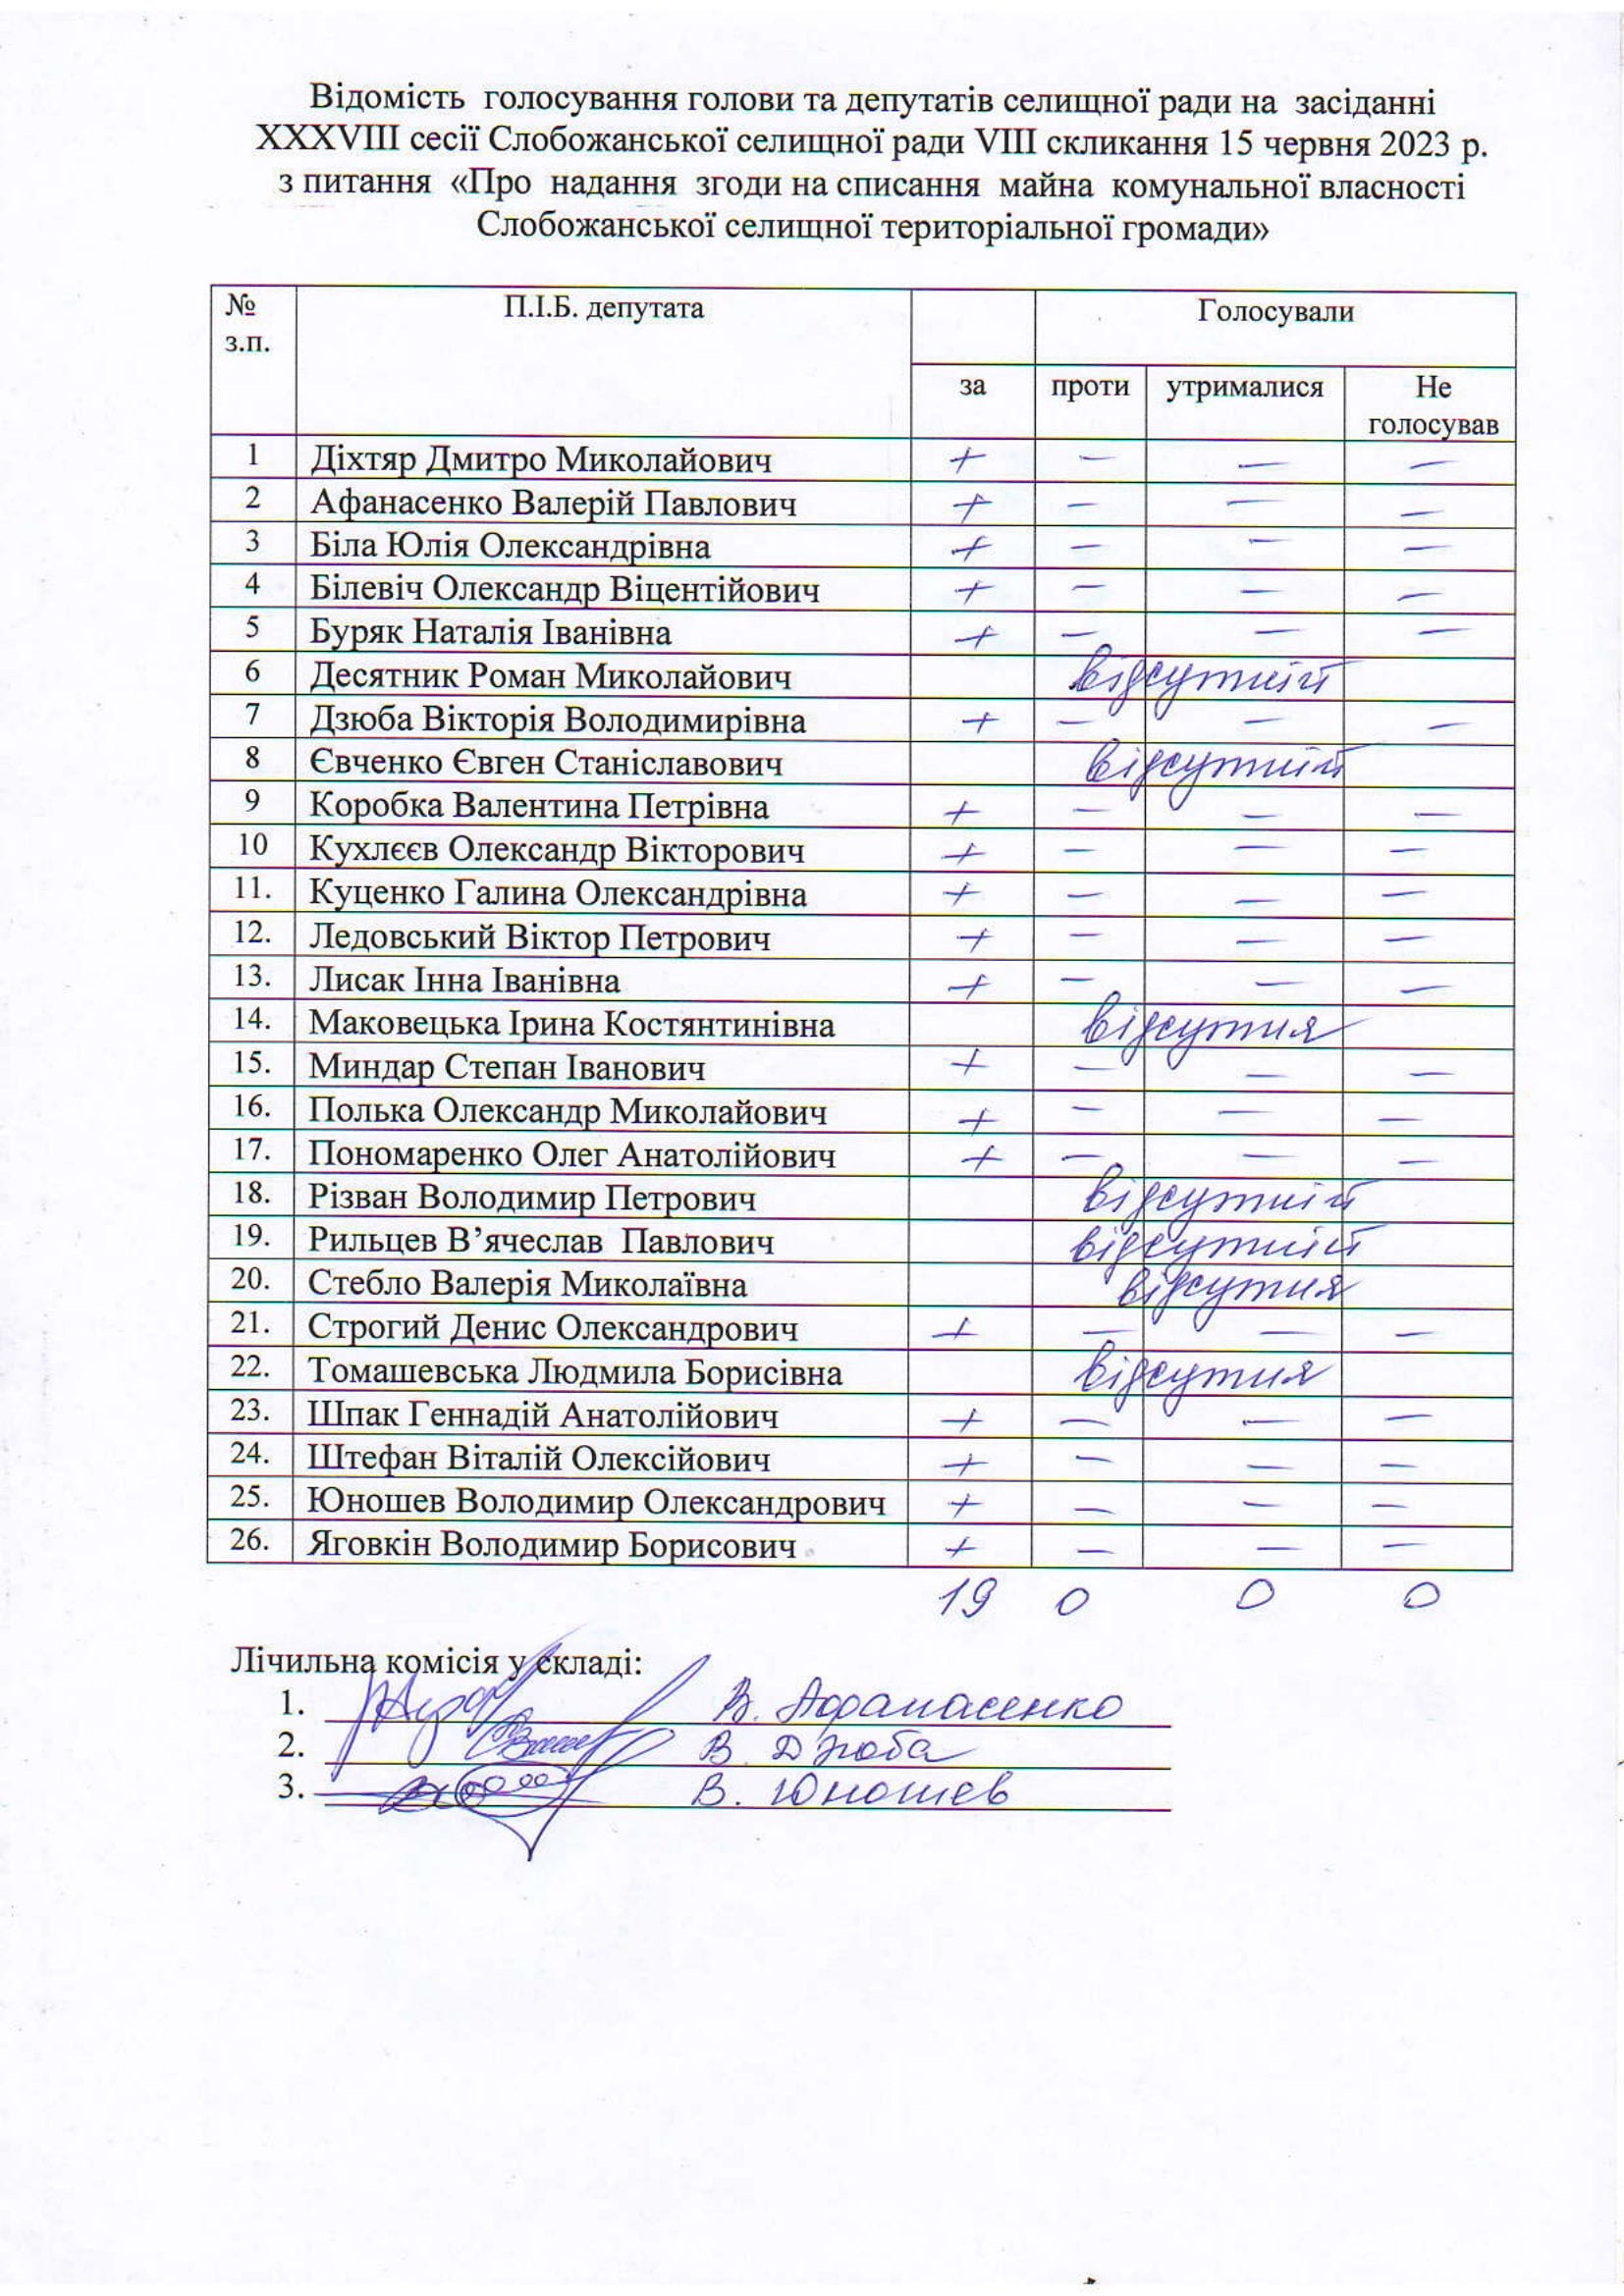 Відомість голосування голови та депутатів селищної ради на засіданні
XXXVIII сесії Слобожанської селищної ради VIII скликання 15 червня 2023 р.
з питання «Про надання згоди на списання майна комунальної власності
Слобожанської селищної територіальної громади»
№ П.І.Б. депутата Голосували
з.п.
за проти утрималися Не
голосував
1 Діхтяр Дмитро Миколайович + — — —
2 Афанасенко Валерій Павлович + — — —
3 Біла Юлія Олександрівна + — — —
4 Білевіч Олександр Віцентійович + — — —
5 Буряк Наталія Іванівна + — — —
6 Десятник Роман Миколайович відсутній
7 Дзюба Вікторія Володимирівна + — — —
8 Євченко Євген Станіславович відсутній
9 Коробка Валентина Петрівна + — — —
10 Кухлєєв Олександр Вікторович + — — —
11. Куценко Галина Олександрівна + — — —
12. Ледовський Віктор Петрович + — — —
13. Лисак Інна Іванівна + — — —
14. Маковецька Ірина Костянтинівна відсутня
15. Миндар Степан Іванович + — — —
16. Полька Олександр Миколайович + — — —
17. Пономаренко Олег Анатолійович + — — —
18. Різван Володимир Петрович відсутній
19. Рильцев В’ячеслав Павлович відсутній
20. Стебло Валерія Миколаївна відсутня
21. Строгий Денис Олександрович + — — —
22. Томашевська Людмила Борисівна відсутня
23. Шпак Геннадій Анатолійович + — — —
24. Штефан Віталій Олексійович + — — —
25. Юношев Володимир Олександрович + — — —
26. Яговкін Володимир Борисович + — — —
19 0 0 0
Лічильна комісія у складі:
1. В. Афанасенко
2. В Дзюба
3. В. Юношев